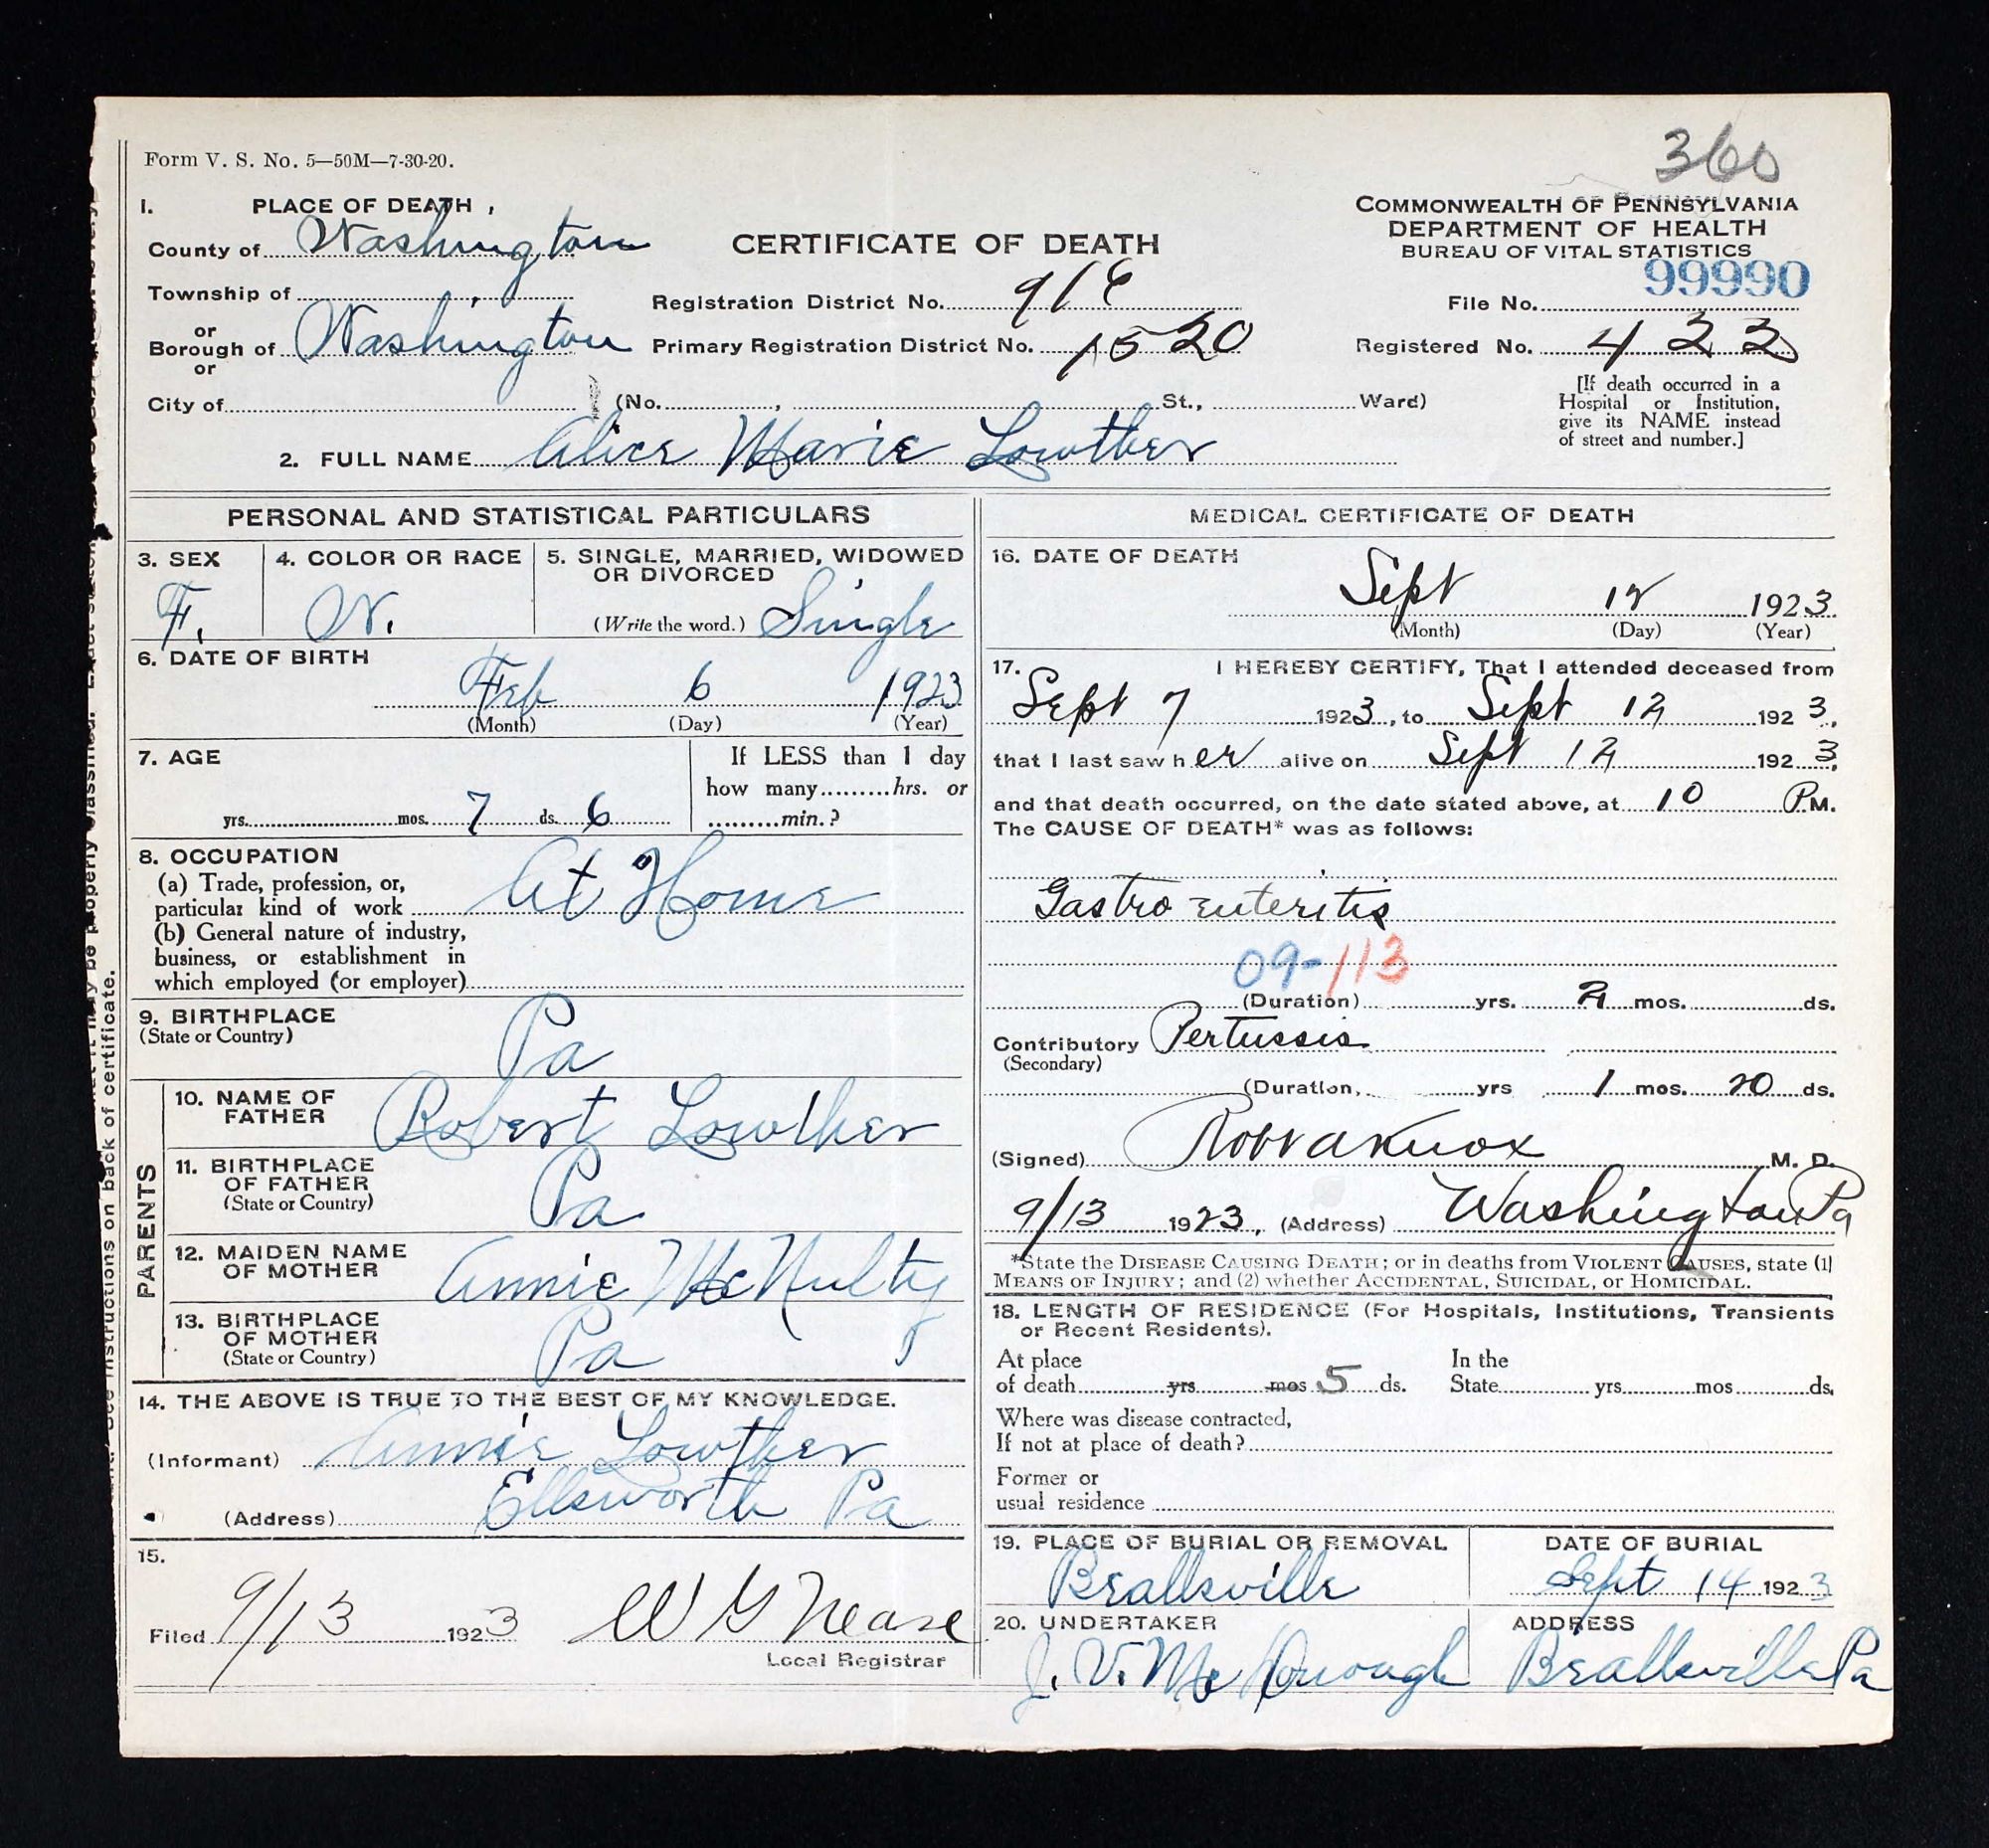 360
Form V. S. No. 5—50M—7-30-20.
1. PLACE OF DEATH,
County of Washington
Township of
or
Borough of Washington
or
City of
CERTIFICATE OF DEATH
Registration District No. 916
Primary Registration District No. 1520
(No. , St., Ward)
COMMONWEALTH OF PENNSYLVANIA
DEPARTMENT OF HEALTH
BUREAU OF VITAL STATISTICS
File No. 99990
Registered No. 423
[If death occurred in a
Hospital or Institution,
give its NAME instead
of street and number.]
2. FULL NAME Alice Marie Lowther
PERSONAL AND STATISTICAL PARTICULARS
3. SEX
F.
4. COLOR OR RACE
W.
5. SINGLE, MARRIED, WIDOWED
OR DIVORCED
(Write the word.) Single
6. DATE OF BIRTH
Feb 6 1923
(Month) (Day) (Year)
7. AGE
yrs. mos. 7 ds. 6
If LESS than 1 day
how many hrs. or
min.?
8. OCCUPATION
(a) Trade, profession, or,
particular kind of work At Home
(b) General nature of industry,
business, or establishment in
which employed (or employer)
9. BIRTHPLACE
(State or Country) Pa
PARENTS
10. NAME OF
FATHER Robert Lowther
11. BIRTHPLACE
OF FATHER
(State or Country) Pa.
12. MAIDEN NAME
OF MOTHER Annie McNulty
13. BIRTHPLACE
OF MOTHER
(State or Country) Pa
14. THE ABOVE IS TRUE TO THE BEST OF MY KNOWLEDGE.
(Informant) Annie Lowther
(Address) Ellsworth Pa
15.
Filed 9/13 1923 W G Nease
Local Registrar
MEDICAL CERTIFICATE OF DEATH
16. DATE OF DEATH
Sept 12 1923
(Month) (Day) (Year)
17. I HEREBY CERTIFY, That I attended deceased from
Sept 7 1923, to Sept 12 1923,
that I last saw her alive on Sept 12 1923,
and that death occurred, on the date stated above, at 10 PM.
The CAUSE OF DEATH* was as follows:
Gastro enteritis
09-113
(Duration) yrs. 2 mos. ds.
Contributory Pertussis
(Secondary)
(Duration, yrs 1 mos. 20 ds.
(Signed) Knox M. D.
9/13 1923, (Address) Washington Pa
*State the DISEASE CAUSING DEATH; or in deaths from VIOLENT CAUSES, state (1)
MEANS OF INJURY; and (2) whether ACCIDENTAL, SUICIDAL, or HOMICIDAL.
18. LENGTH OF RESIDENCE (For Hospitals, Institutions, Transients
or Recent Residents).
At place
of death yrs mos 5 ds.
In the
State yrs. mos ds,
Where was disease contracted,
If not at place of death?
Former or
usual residence
19. PLACE OF BURIAL OR REMOVAL
Beallsville
DATE OF BURIAL
Sept 14 1923
20. UNDERTAKER
J. V. McDonough
ADDRESS
Beallsville Pa
See instructions on back of certificate.